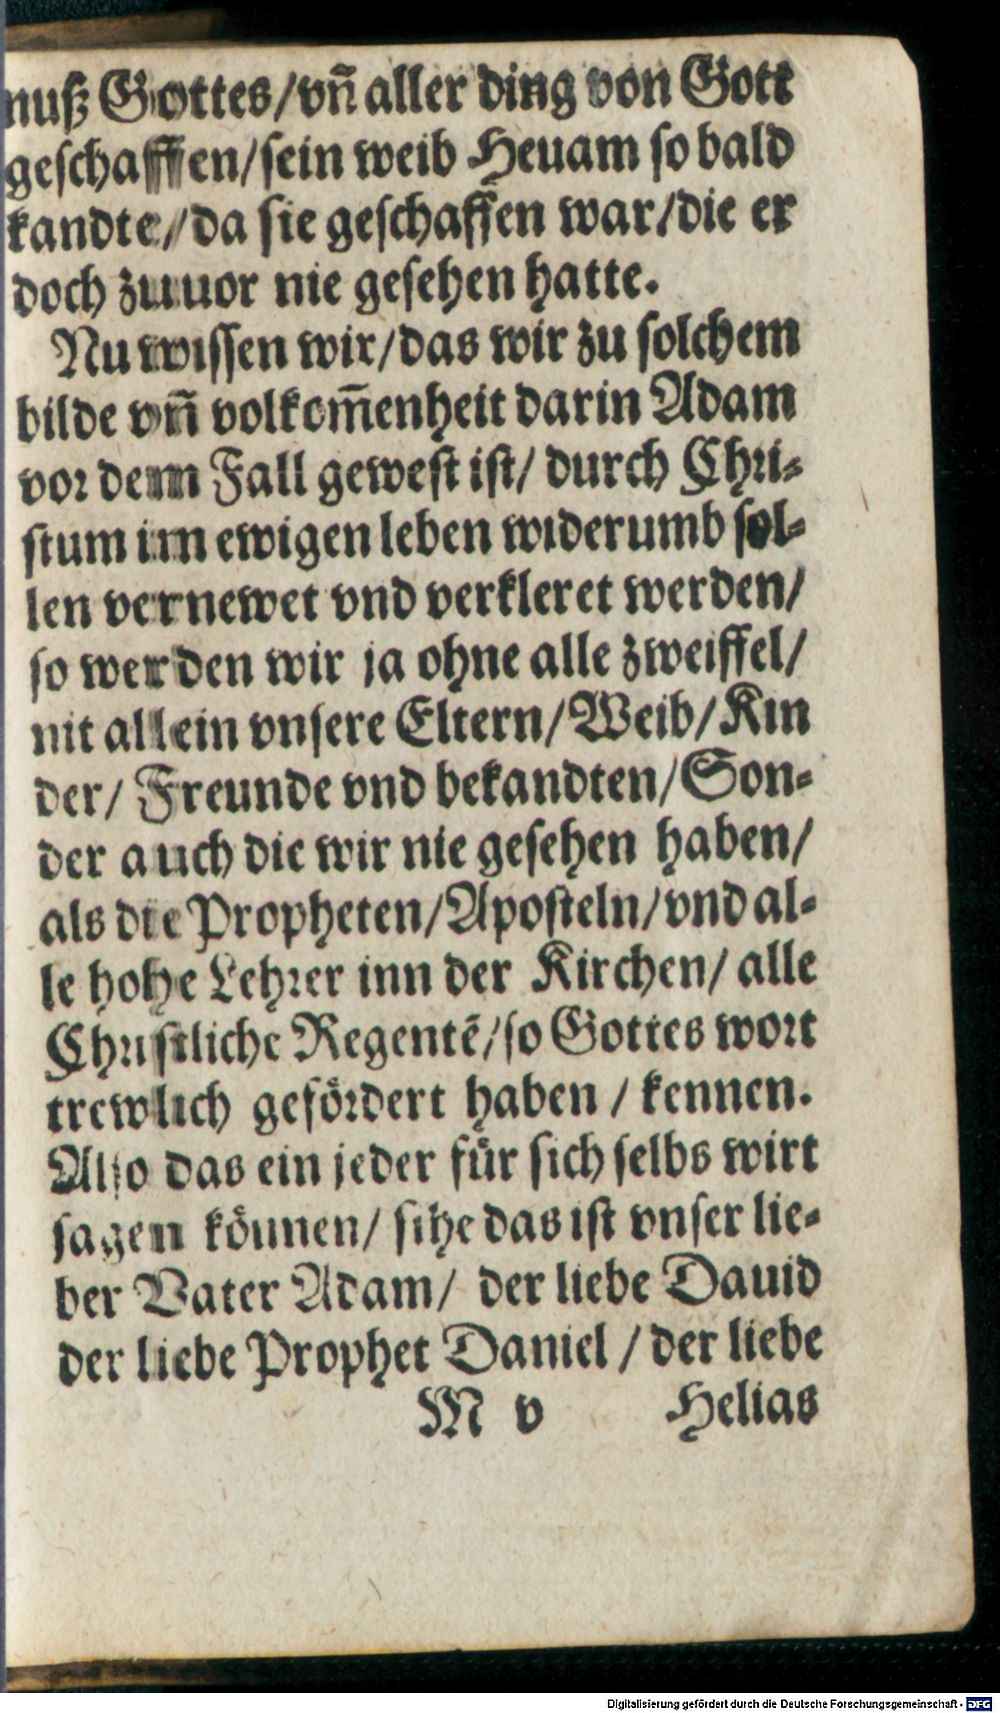 nuß Gottes/ vñ aller ding von Gott
geschaffen/ sein weib Heuam so bald
kandte/ da sie geschaffen war/ die er
doch zuuor nie gesehen hatte.
Nu wissen wir/ das wir zu solchem
bilde vñ volkom̃enheit darin Adam
vor dem Fall gewest ist/ durch Chri-
stum im ewigen leben widerumb sol-
len vernewet vnd verkleret werden/
so werden wir ja ohne alle zweiffel/
nit allein vnsere Eltern/ Weib/ Kin
der/ Freunde vnd bekandten/ Son-
der auch die wir nie gesehen haben/
als die Propheten/ Aposteln/ vnd al-
le hohe Lehrer inn der Kirchen/ alle
Christliche Regentẽ/ so Gottes wort
trewlich gefördert haben / kennen.
Also das ein jeder für sich selbs wirt
sagen können/ sihe das ist vnser lie-
ber Vater Adam/ der liebe Dauid
der liebe Prophet Daniel / der liebe
M v Helias
Digitalisierung gefördert durch die Deutsche Forschungsgemeinschaft - DFG